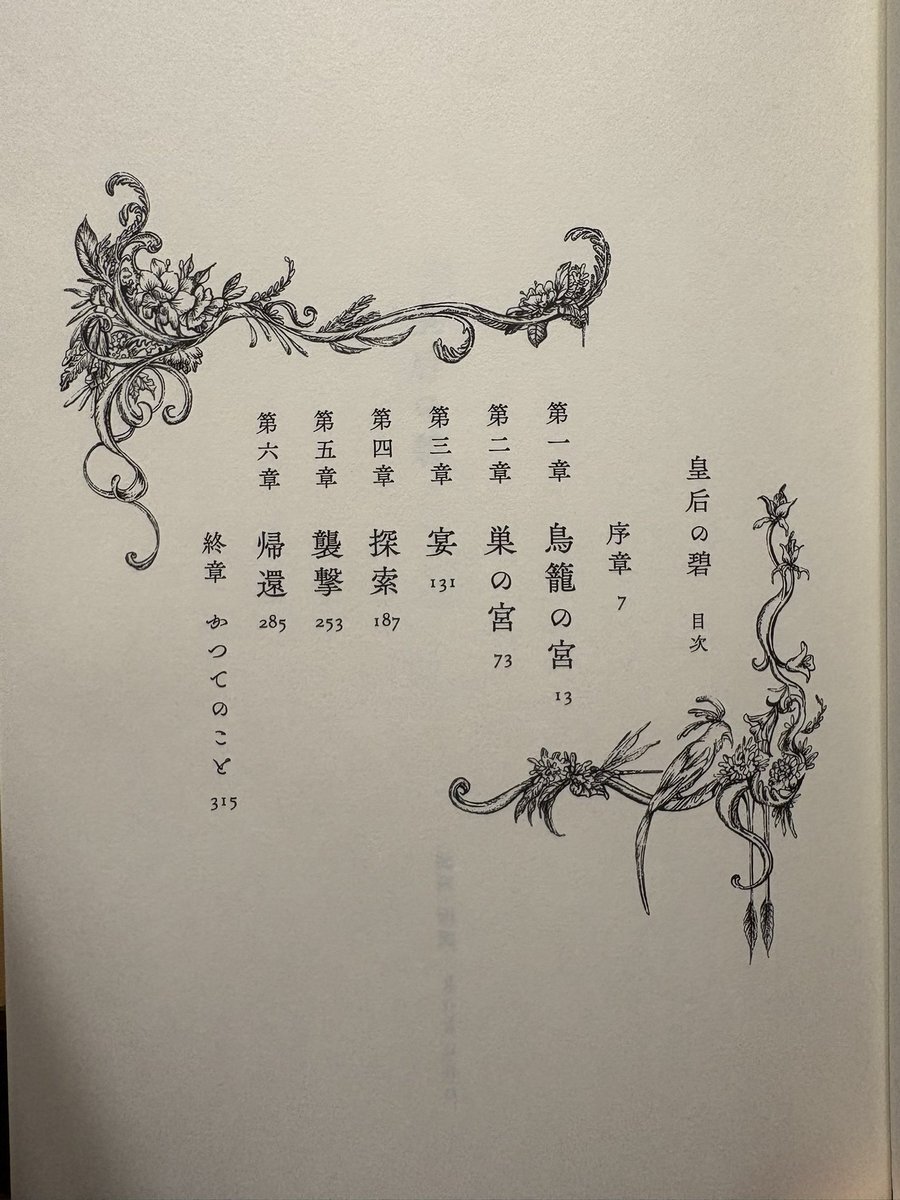 皇后の碧 目次
序章 7
第一章 鳥籠の宮 13
第二章 巣の宮 73
第三章 宴 131
第四章 探索 187
第五章 襲撃 253
第六章 帰還 285
終章 かつてのこと 315